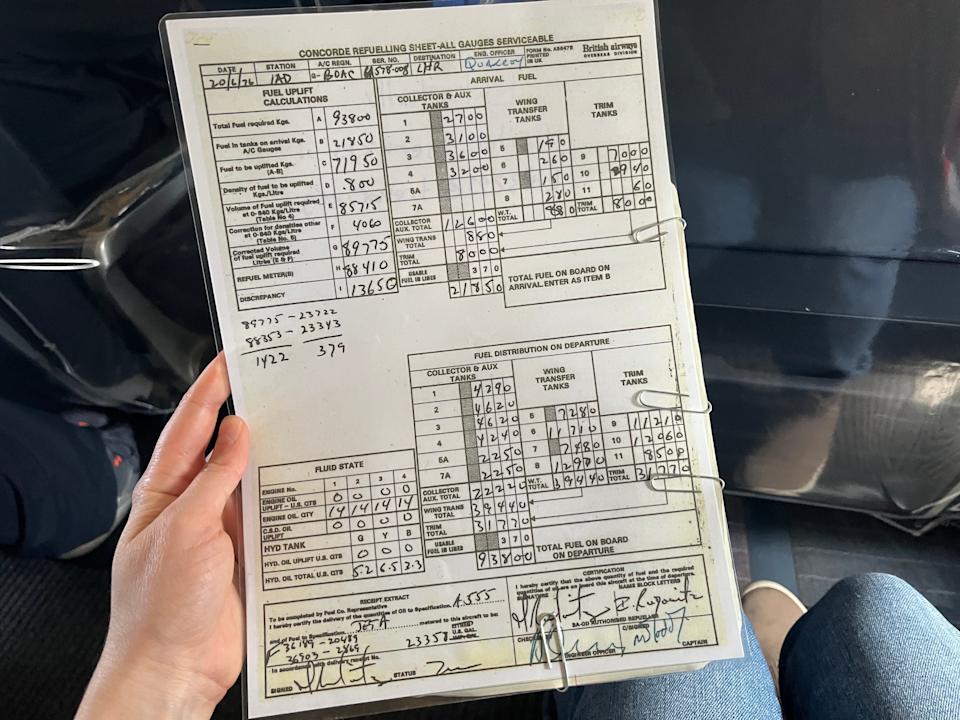 CONCORDE REFUELLING SHEET-ALL GAUGES SERVICEABLE
DATE STATION A/C REGN. SER. NO. DESTINATION ENG. OFFICER FORM No. PRINTED IN UK British airways OVERSEAS DIVISION
20/6/76 IAD G-BOAC LHR
FUEL UPLIFT CALCULATIONS
Total Fuel required Kgs. A 93800
Fuel in tanks on arrival Kgs. A/C Gauges B 21850
Fuel to be uplifted Kgs. (A-B) C 71950
Density of fuel to be uplifted Kgs./Litre D .800
Volume of Fuel uplift required at 0·840 Kgs/Litre (Table No. 4) E 85715
Correction for densities other at 0·840 Kgs/Litre (Table No. 5) F 4060
Corrected Volume of fuel uplift required Litres (E & F) G 89775
REFUEL METER(S) H 88410
DISCREPANCY I 1365
89775 - 23722
88353 - 23343
1422 379
ARRIVAL FUEL
COLLECTOR & AUX TANKS
1 2700
2 3100
3 3600
4 3200
5A
7A
WING TRANSFER TANKS
5 190
6 260
7 150
8 280
W.T. TOTAL 880
TRIM TANKS
9 7000
10 940
11 60
TRIM TOTAL 8000
COLLECTOR AUX. TOTAL 12600
WING TRANS TOTAL 880
TRIM TOTAL 8000
USABLE FUEL IN LINES 370
21850
TOTAL FUEL ON BOARD ON ARRIVAL. ENTER AS ITEM B
FUEL DISTRIBUTION ON DEPARTURE
COLLECTOR & AUX TANKS
1 4290
2 4620
3 4620
4 4240
5A 2250
7A 2250
WING TRANSFER TANKS
5 7280
6 11710
7 7480
8 12970
W.T. TOTAL 39440
TRIM TANKS
9 11210
10 12060
11 8500
TRIM TOTAL 31770
COLLECTOR AUX. TOTAL 22220
WING TRANS TOTAL 39440
TRIM TOTAL 31770
USABLE FUEL IN LINES 370
93800
TOTAL FUEL ON BOARD ON DEPARTURE
FLUID STATE
ENGINE No. 1 2 3 4
ENGINE OIL UPLIFT - U.S. QTS 0 0 0 0
ENGINE OIL. QTY 14 14 14 14
C.S.D. OIL UPLIFT 0 0 0 0
HYD TANK G Y B
HYD. OIL UPLIFT U.S. QTS 0 0 0
HYD OIL TOTAL U.S. QTS 5.2 6.5 3.3
RECEIPT EXTRACT
To be completed by Fuel Co. Representative
I hereby certify the delivery of the quantities of Oil to Specification. A.555
and of Fuel to Specification JET A metered to this aircraft to be:
36189 - 20489
36903 - 2869
23358 U.S. GAL.
In accordance with delivery receipt No.
SIGNED STATUS
CERTIFICATION
I hereby certify that the above quantity of fuel and the required quantities of oil are on board this aircraft at the time of departure.
SIGNATURE NAME BLOCK LETTERS
BA-OD AUTHORISED REFUELLER
ENGINEER OFFICER
CAPTAIN